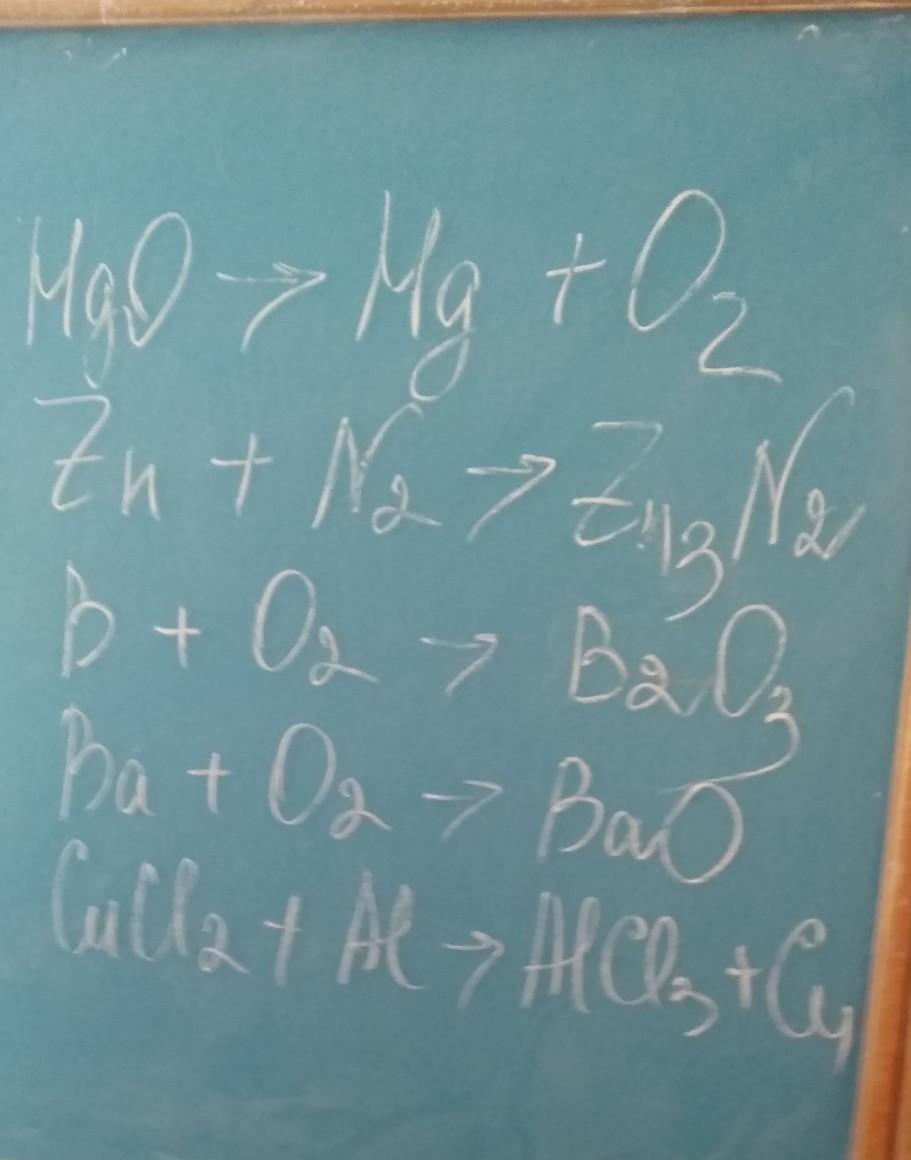 MgO → Mg + O₂
Zn + N₂ → Zn₃N₂
B + O₂ → B₂O₃
Ba + O₂ → BaO
CuCl₂ + Al → AlCl₃ + Cu